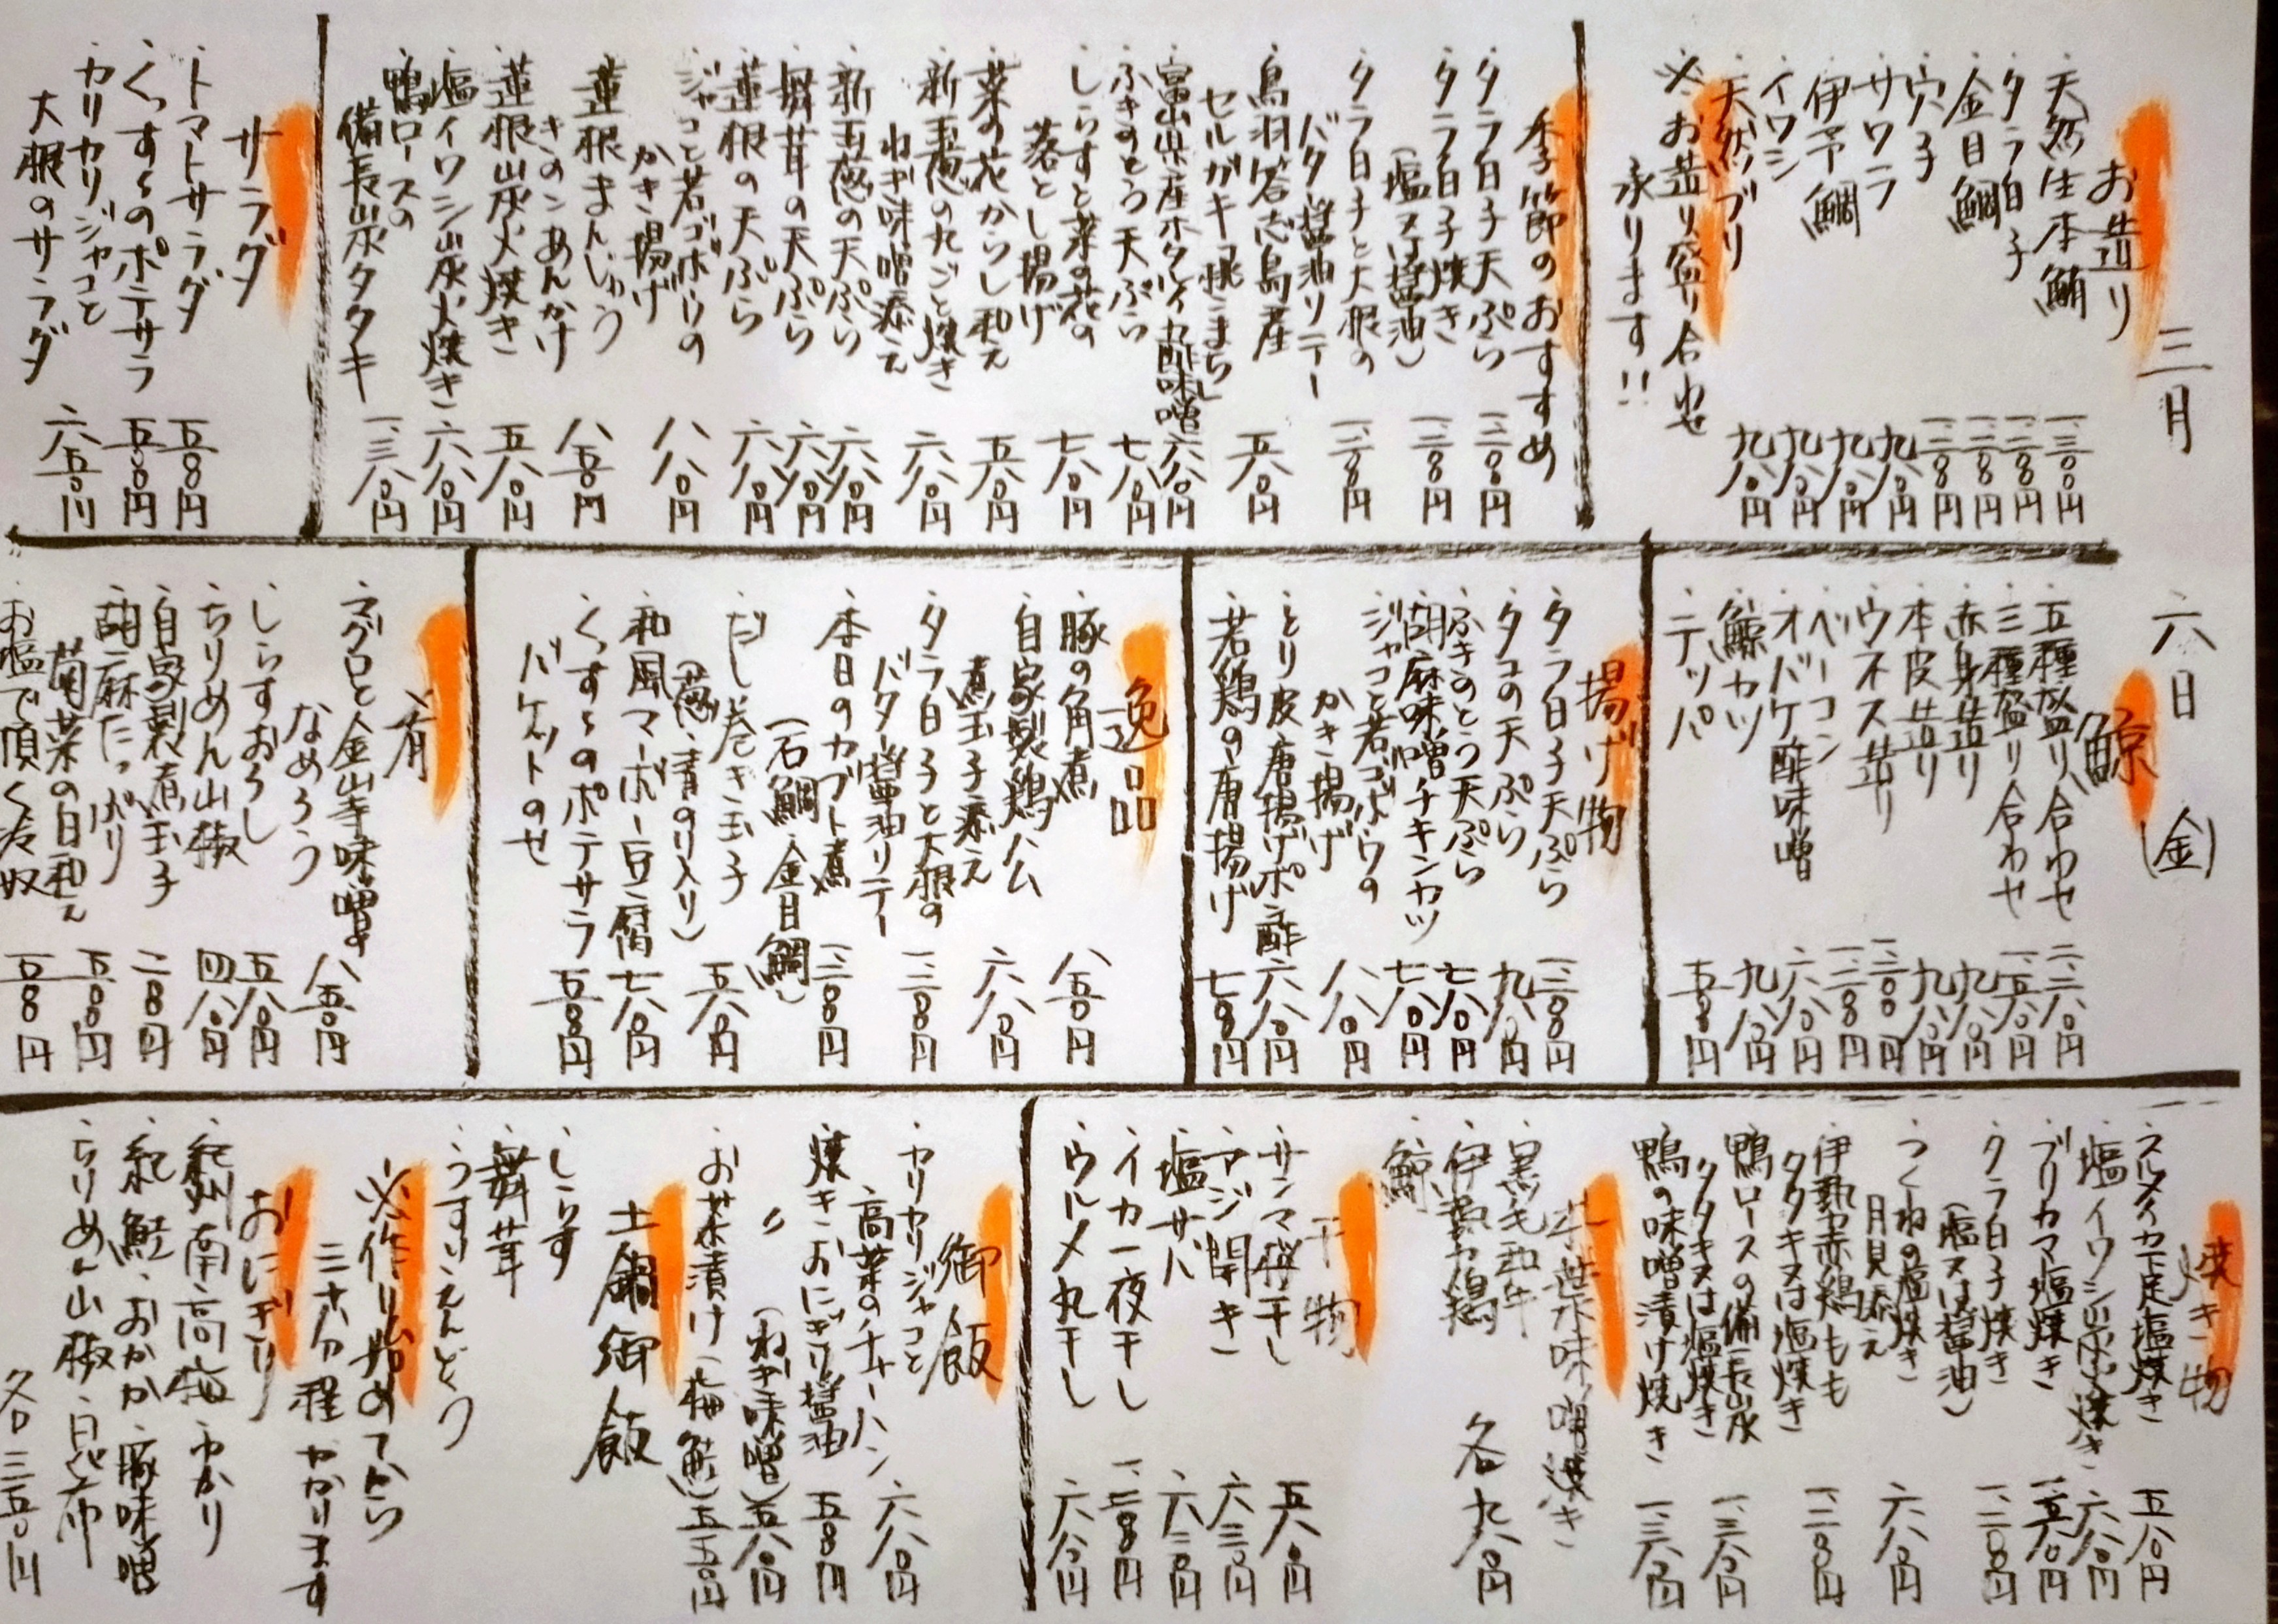 三月 六日 (金)
お造り
・天然生本鮪 一、三〇〇円
・タラ白子 一、二〇〇円
・金目鯛 一、二〇〇円
・穴子 一、二〇〇円
・サワラ 九八〇円
・伊予鯛 九八〇円
・イワシ 九八〇円
・天然ブリ 九八〇円
※お造り盛り合わせ
承ります!!
季節のおすすめ
・タラ白子天ぷら 一、二〇〇円
・タラ白子焼き
(塩又は醤油) 一、二〇〇円
・タラ白子と大根の
バター醤油ソテー 一、二〇〇円
・鳥羽答志島産
セルガキ 桃こまち 五八〇円
・富山県産ホタルイカ酢味噌 六八〇円
・ふきのとう天ぷら 七八〇円
・しらすと菜の花の
落とし揚げ 七八〇円
・菜の花からし和え 五八〇円
・新玉葱の丸ごと焼き
ねぎ味噌添え 六八〇円
・新玉葱の天ぷら 六八〇円
・舞茸の天ぷら 六八〇円
・蓮根の天ぷら 六八〇円
・ジャコと若ゴボウの
かき揚げ 八八〇円
・蓮根まんじゅう
きのこあんかけ 八五〇円
・蓮根炭火焼き 五八〇円
・塩イワシ炭火焼き 六八〇円
・鴨ロースの
備長炭タタキ 一、三八〇円
サラダ
・トマトサラダ 五〇〇円
・くっすぅのポテサラ 五〇〇円
・カリカリジャコと
大根のサラダ 六五〇円
鯨
・五種盛り合わせ 二、二八〇円
・三種盛り合わせ 一、五八〇円
・赤身造り 九八〇円
・本皮造り 九八〇円
・ウネス造り 一、二〇〇円
・ベーコン 一、二〇〇円
・オバケ酢味噌 六八〇円
・鯨カツ 九八〇円
・テッパ 五〇〇円
揚げ物
・タラ白子天ぷら 一、二〇〇円
・タコの天ぷら 九八〇円
・ふきのとう天ぷら 七八〇円
・胡麻味噌チキンカツ 七八〇円
・ジャコと若ゴボウの
かき揚げ 八八〇円
・とり皮唐揚げポン酢 六八〇円
・若鶏の唐揚げ 七五〇円
逸品
・豚の角煮 八五〇円
・自家製鶏ハム
煮玉子添え 六八〇円
・タラ白子と大根の
バター醤油ソテー 一、二〇〇円
・本日のカブト煮
(石鯛・金目鯛) 一、二〇〇円
・だし巻き玉子
(葱・青のり入り) 五八〇円
・和風マーボー豆腐 七八〇円
・くっすぅのポテサラ
バケットのせ 五五〇円
肴
・マグロと金山寺味噌の
なめろう 八五〇円
・しらすおろし 五八〇円
・ちりめん山椒 四八〇円
・自家製煮玉子 二〇〇円
・胡麻たっぷり
菊菜の白和え 五五〇円
・お塩で頂く冷奴 五〇〇円
焼き物
・スルメイカ下足塩焼き 五八〇円
・塩イワシ炭火焼き 六八〇円
・ブリカマ塩焼き 一、五八〇円
・タラ白子焼き
(塩又は醤油) 一、二〇〇円
・つくねの塩焼き
月見添え 六八〇円
・伊勢赤鶏もも
タタキ又は塩焼き 一、二〇〇円
・鴨ロースの備長炭
タタキ又は塩焼き 一、三八〇円
・鴨の味噌漬け焼き 一、三八〇円
朴葉味噌焼き
・黒毛和牛
・伊勢赤鶏
・鯨
各九八〇円
干物
・サンマ桜干し 五八〇円
・アジ開き 六三〇円
・塩サバ 六三〇円
・イカ一夜干し 一、二〇〇円
・ウルメ丸干し 六八〇円
御飯
・カリカリジャコと
高菜のチャーハン 六八〇円
・焼きおにぎり醤油 五五〇円
〃 (ねぎ味噌) 五八〇円
・お茶漬け(梅・鮭) 五五〇円
土鍋御飯
・しらす
・舞茸
・うすいえんどう
※作り始めてから
三十分程かかります
おにぎり
・紀州南高梅・ゆかり
・紅鮭・おかか・豚味噌
・ちりめん山椒・昆布
各三五〇円